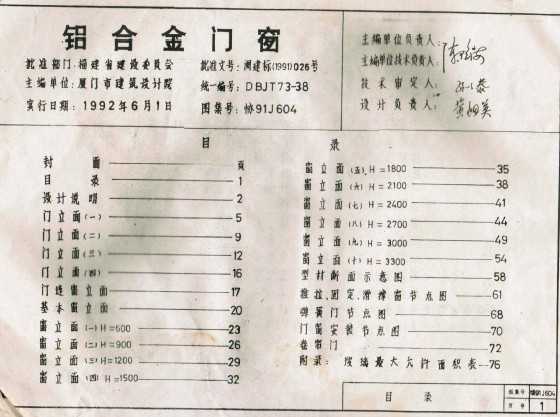 铝合金门窗
批准部门:福建省建设委员会
批准文号:闽建标(1991)026号
主编单位:厦门市建筑设计院
统一编号:DBJT73-38
实行日期:1992年6月1日
图集号:协91J604
主编单位负责人:
主编单位技术负责人:
技术审定人:
设计负责人:
目录
封面 页
目录 1
设计说明 2
门立面(一) 5
门立面(二) 9
门立面(三) 12
门立面(四) 16
门连窗立面 17
基本窗立面 20
窗立面(一)H=600 23
窗立面(二)H=900 26
窗立面(三)H=1200 29
窗立面(四)H=1500 32
窗立面(五)H=1800 35
窗立面(六)H=2100 38
窗立面(七)H=2400 41
窗立面(八)H=2700 44
窗立面(九)H=3000 49
窗立面(十)H=3300 54
型材断面示意图 58
推拉、固定、滑撑窗节点图 61
弹簧门节点图 68
门窗安装节点图 70
卷帘门 72
附录:玻璃最大允许面积表 76
目录
图集号
协91J604
页号
1